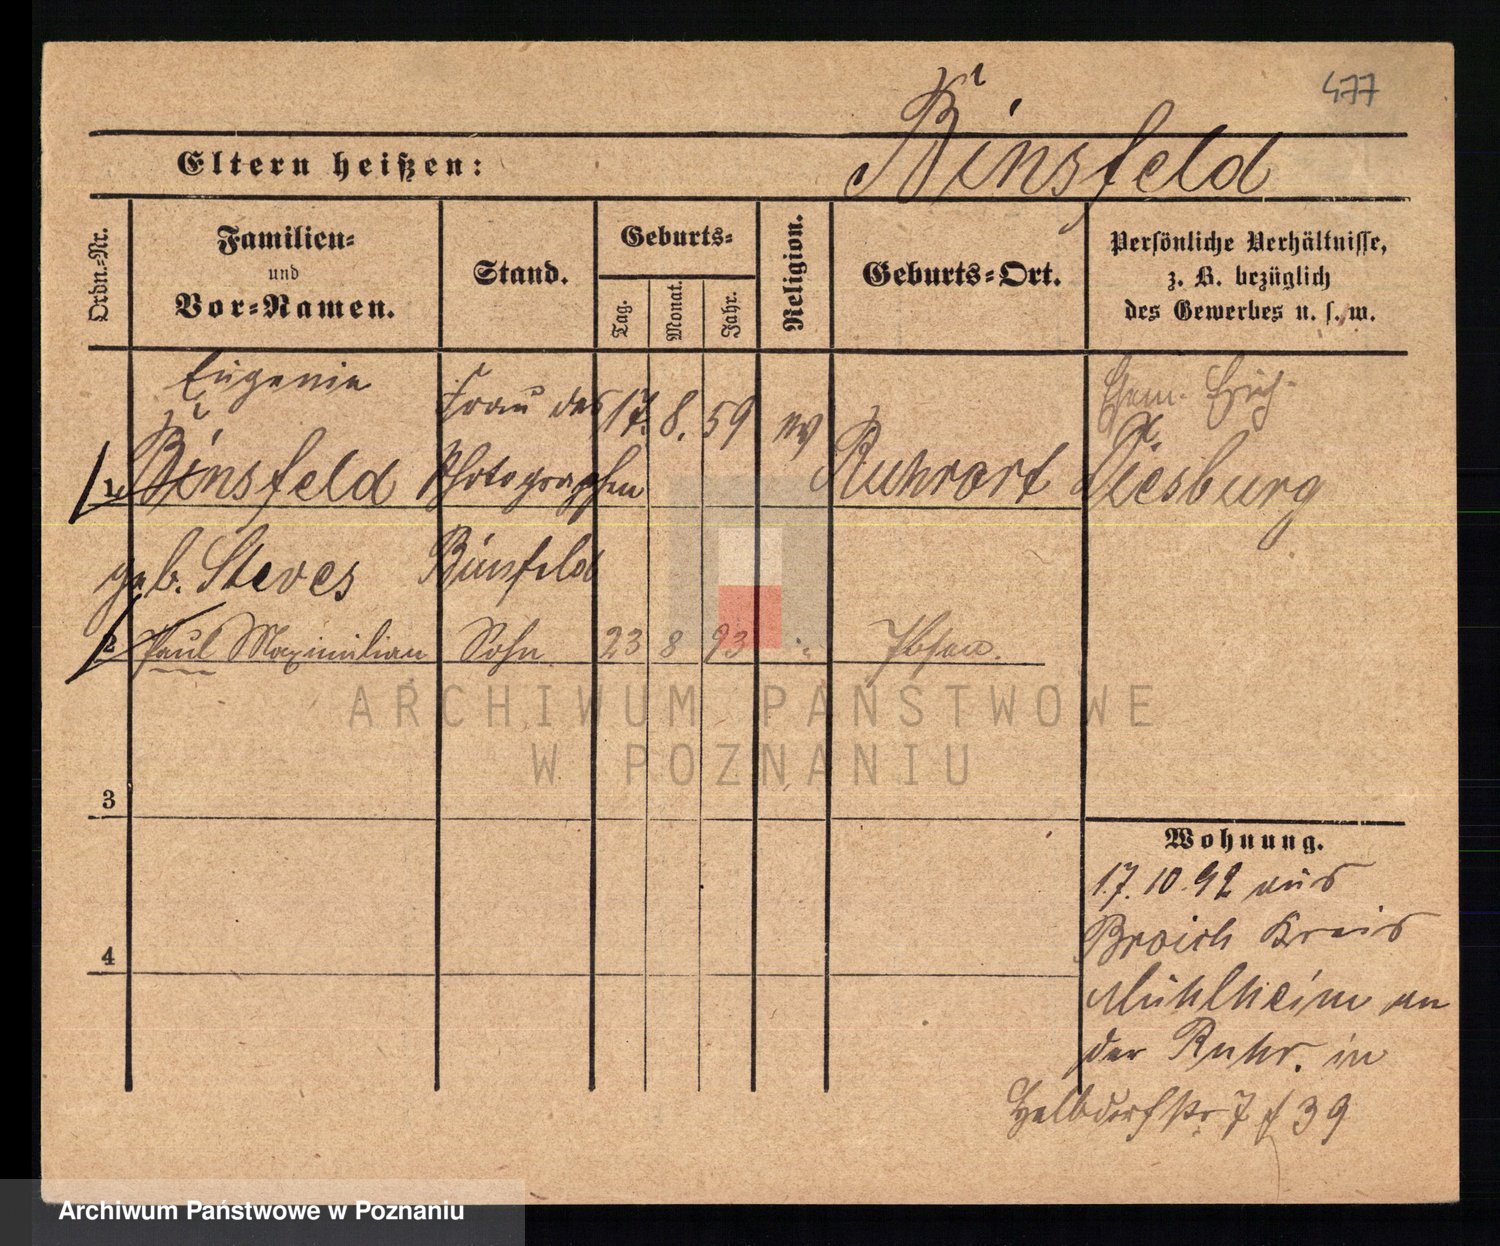 477
Binsfeld
Eltern heißen:
Ordn.-Nr.
Familien-
und
Vor-Namen.
Stand.
Geburts-
Tag.
Monat.
Jahr.
Religion.
Geburts-Ort.
Persönliche Verhältnisse,
z. B. bezüglich
des Gewerbes u. s. w.
Eugenie
1 Binsfeld
geb. Steves
Frau des
Photographen
Binsfeld
17. 8. 59
ev
Ruhrort
Duisburg
2 Paul Maximilian Sohn 23 8 93 Posen.
ARCHIWUM PAŃSTWOWE
W POZNANIU
3
4
Wohnung.
17. 10. 92 aus
Broich Kreis
Mühlheim an
der Ruhr. in
Halbdorfstr. 7 f 39
Archiwum Państwowe w Poznaniu